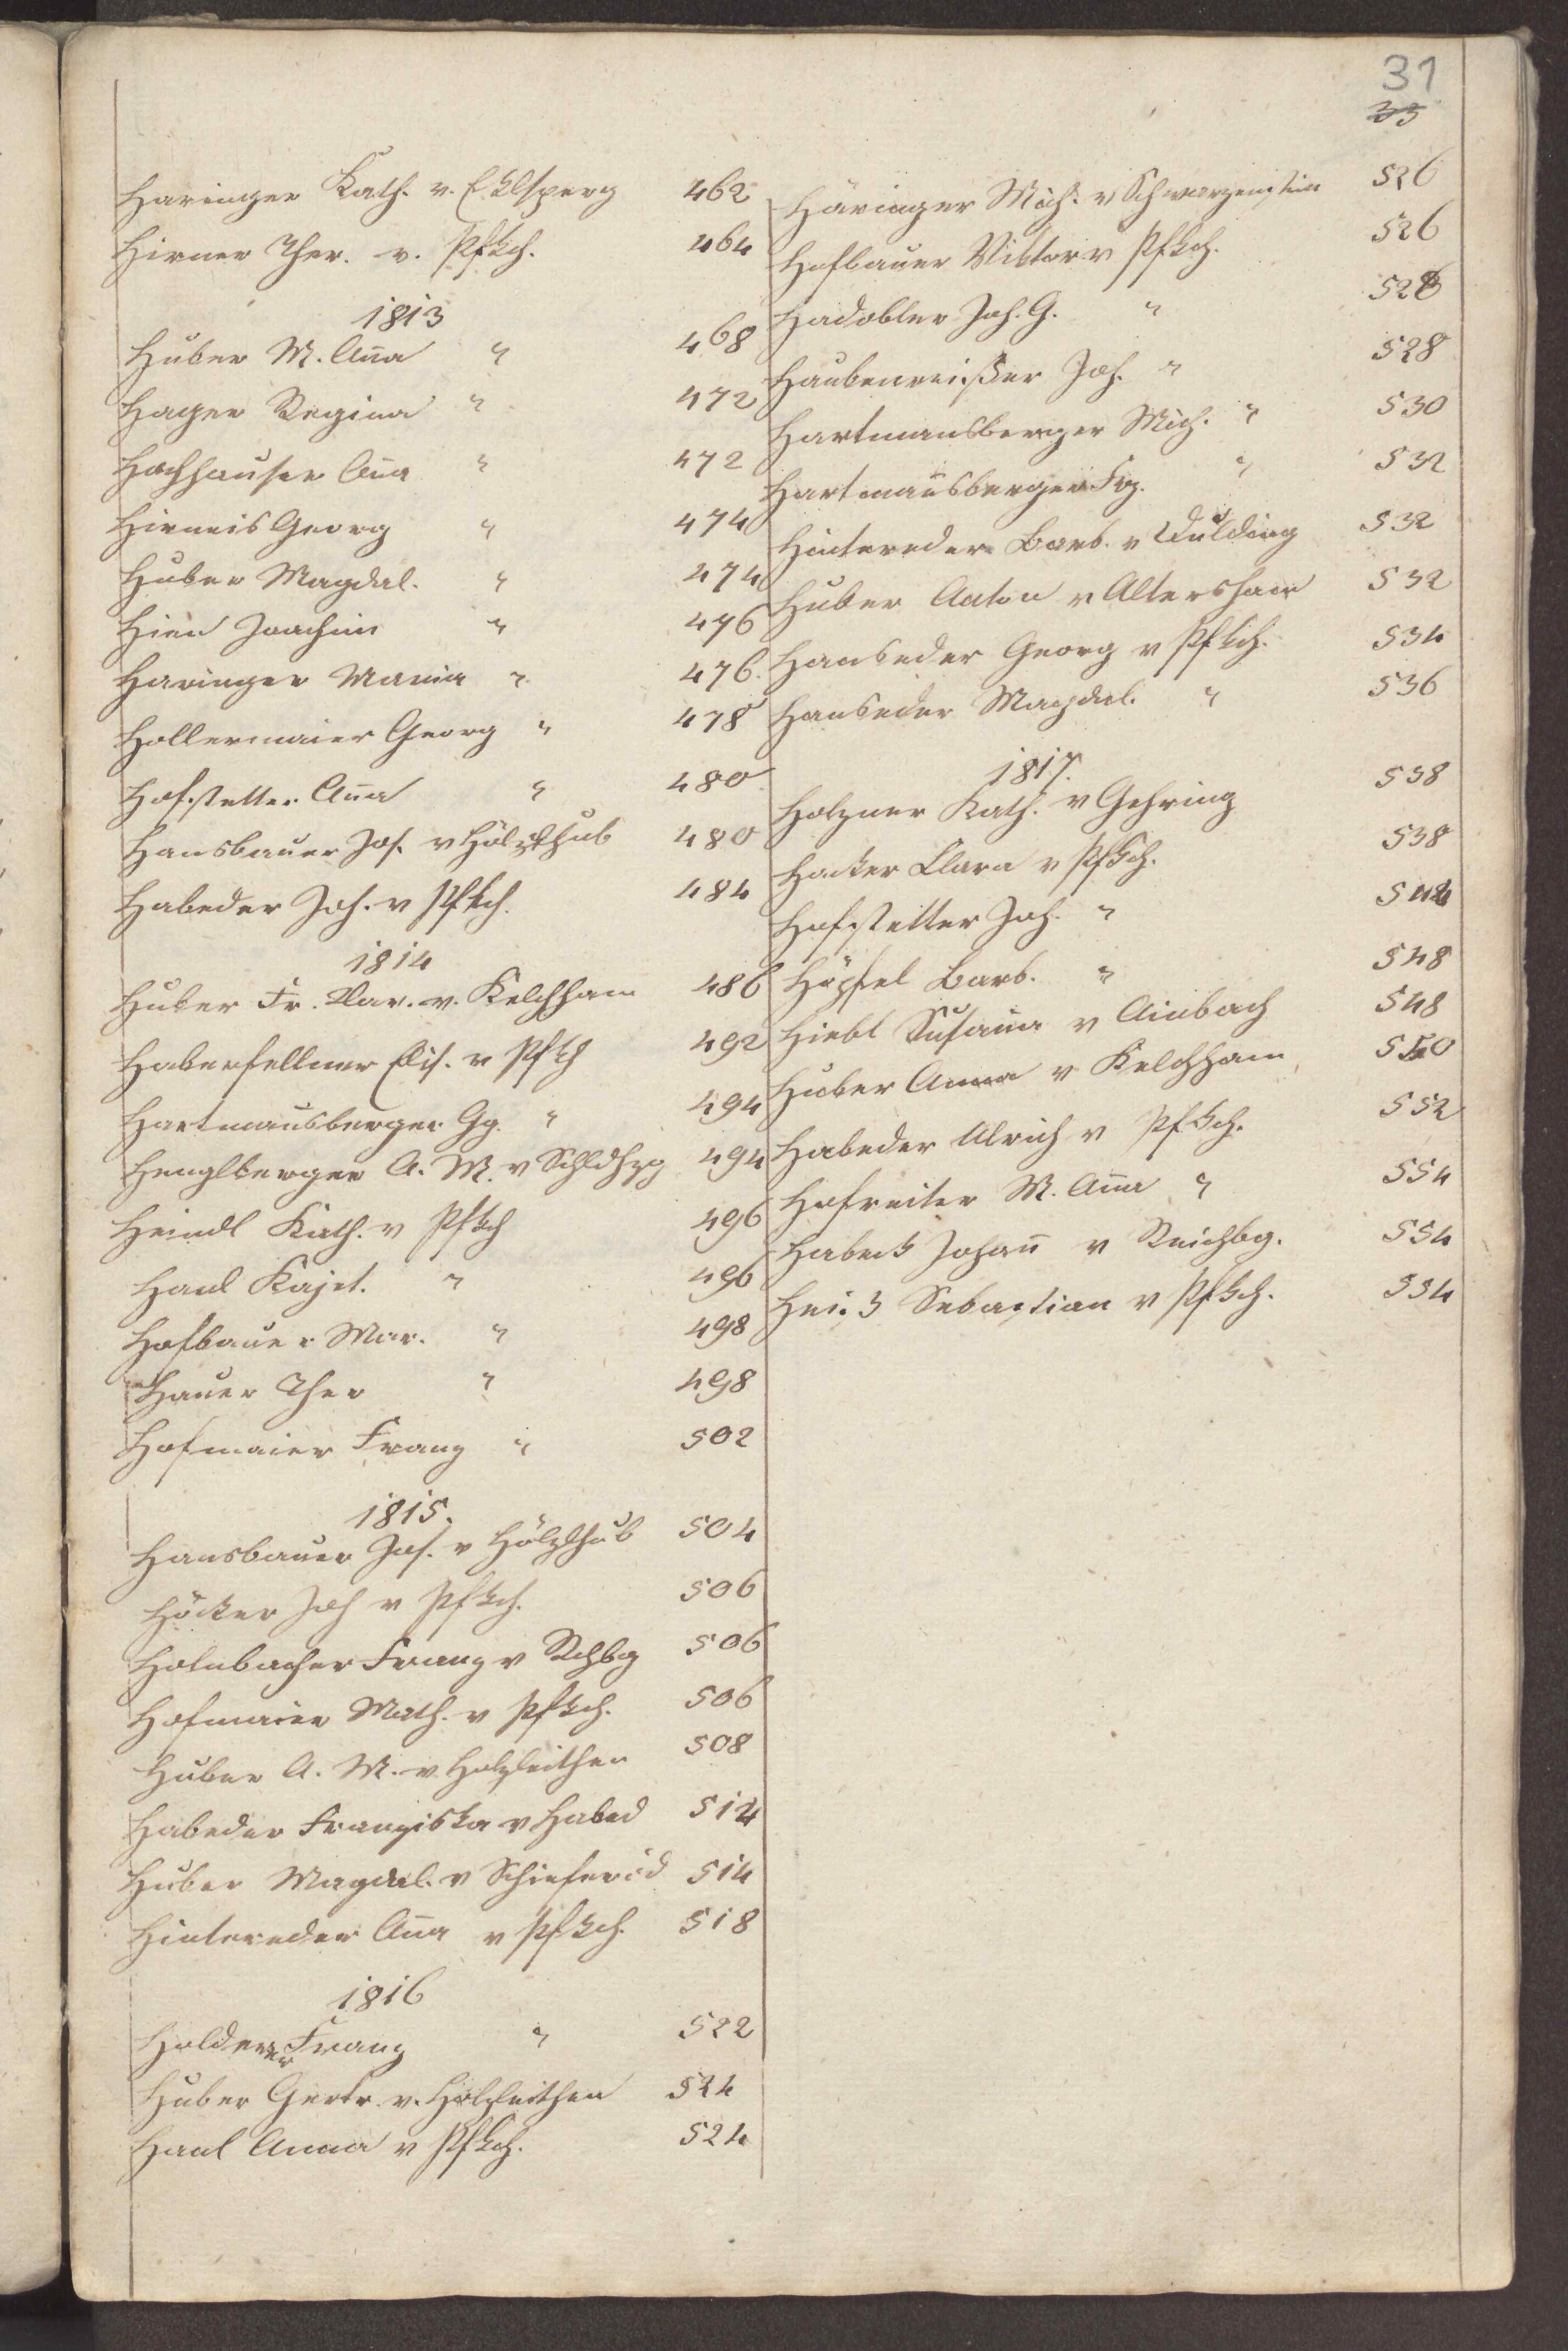 31
33
Haringer Kath. v. Eklsperg 462
Hirner Ther. v. Pfkch. 464
1813
Huber M. Aña " 468
Hager Regina " 472
Hochhauser Aña " 472
Hirneis Georg " 474
Huber Magdal. " 474
Hien Joachim " 476
Haringer Maria " 476.
Hollermaier Georg " 478
Hofstetter Aña " 480
Hansbauer Jos. v Hölzlhub 480
Habeder Joh. v Pfkch. 484
1814
Huber Fr. Xav. v. Kelchham 486
Haberfellner Elis. v Pfkch 492
Hartmañsberger Gg. " 494
Henglberger A. M. v 494
Heindl Kath. v Pfkch 496
Hanl Kajet. " 496
Hofbauer Mar. " 498
Hauer Ther " 498
Hofmaier Franz " 502
1815.
Hansbauer Jos. v Hölzlhub 504
Höcker Joh v Pfkch. 506
Holnbacher Franz v Rchbg 506
Hofmaier Math. v Pfkch. 506
Huber A. M. v Holzleithen 508
Habeder Franziska v Habed 514
Huber Magdal. v Schieferöd 514
Hintereder Aña v Pfkch. 518
1816
Holderer Franz " 522
Huber Gertr. v. Holzleithen 524
Hanl Anna v Pfkch. 524
Häringer Mich. v Schwarzenstein 526
Hofbauer Viktor v Pfkch. 526
Hadobler Joh. G. " 528
Haubenreißer Joh. " 528
Hartmansberger Mich. " 530
Hartmañsberger Frz. " 532
Hintereder Barb. v Dulding 532
Huber Anton v Altersham 532
Hanseder Georg v Pfkch. 534
Hanseder Magdal. " 536
1817.
Holzner Kath. v Gehring 538
Hacker Clara v Pfkch. 538
Hofstetter Joh. " 544
Höpfel Barb. " 548
Hiebl Susaña v Ainbach 548
Huber Anna v Kelchham 550
Habeder Ulrich v Pfkch. 552
Hofreiter M. Aña " 554
Habeck Johañ v Reichbg. 554
Heiß Sebastian v Pfkch. 554